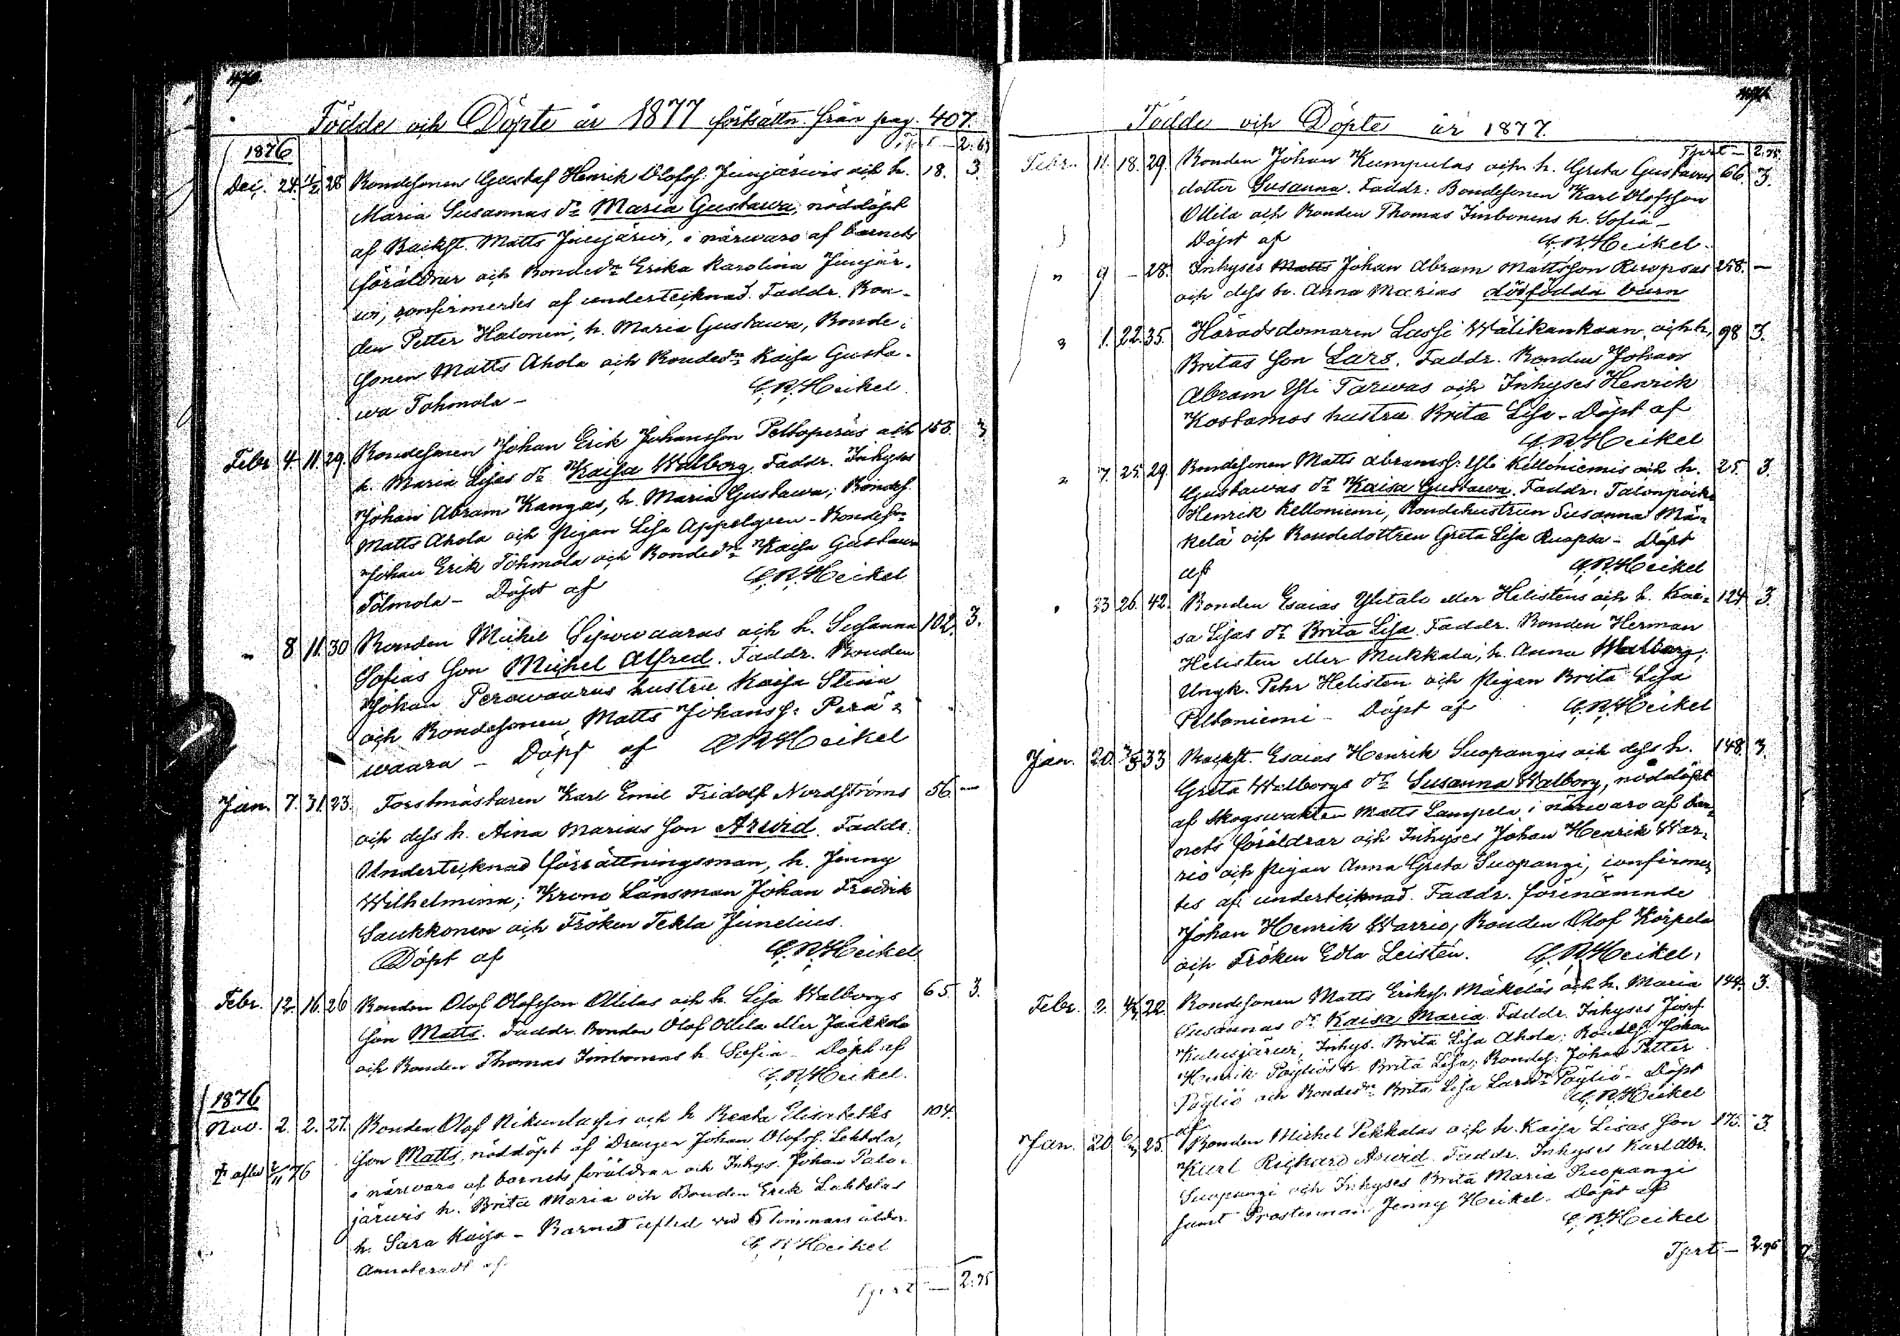 470.
Födde och Döpte år 1877 fortsättn. från pag. 407.
Tprt — 2:63
1876
Dec. 24. 11/2 28 Bondesonen Gustaf Henrik Olofss. Junjärwis och h. 18. 3.
Maria Susannas dr Maria Gustawa, nöddöpt
af Backst. Matts Junjärwi, i närwaro af barnets
föräldrar och Bondedn Erika Karolina Junjär-
wi, confirmertes af undertecknad. Faddr. Bon-
den Petter Halonen, h. Maria Gustawa, Bonde-
sonen Matts Ahola och Bondedn Kaisa Gusta-
wa Tohmola – C.R. Heikel
Febr. 4. 11. 29. Bondesonen Johan Erik Johansson Peltoperäs och 158. 3
h. Maria Lisas dr Kaisa Walborg. Faddr. Inhyses
Johan Abram Kangas, h. Maria Gustawa; Bondes.
Matts Ahola och Pigan Lisa Appelgren – Bondeson
Johan Erik Tohmola och Bondedn Kaisa Gustawa
Tolmola – Döpt af C.R. Heikel
" 8 11. 30 Bonden Mickel Sipowaaras och h. Susanna 102. 3.
Sofias son Michel Alfred. Faddr. Bonden
Johan Perawaaras hustru Kaisa Stina
och Bondesonen Matts Johanss. Perä-
waara – Döpt af C.R. Heikel
Jan. 7. 31. 23. Forstmästaren Karl Emil Fridolf Nordströms 56. —
och dess h. Aina Marias son Arwid. Faddr.
Undertecknad förrättningsman, h. Jenny
Wilhelmina; Krono Länsman Johan Fredrik
Saukkonen och Fröken Tekla Junelius.
Döpt af C.R. Heikel
Febr. 12. 16. 26 Bonden Olof Olofsson Ollilas och h. Lisa Walborgs 65. 3.
son Matts. Faddr. Bonden Olof Ollila eller Jaakkola
och Bonden Thomas Imbonens h. Sofia – Döpt af
C.R. Heikel.
1876
Nov. 2. 2. 27. Bonden Olof Nikunlassis och h. Beata Elisabeths 104.
† afled 2/11 76 son Matts, nöddöpt af Drängen Johan Olofss. Lehtola,
i närwaro af barnets föräldrar och Inhys. Johan Palo-
järwis h. Brita Maria och Bonden Erik Lahtelas
h. Sara Kaisa – Barnet afled wid 5 timmars ålder.
Annoteradt af C.R. Heikel
Tprt — 2:75
Födde och Döpte år 1877.
Tprt — 2:75.
Febr. 11. 18. 29. Bonden Johan Kumpulas och h. Greta Gustawas 66. 3.
dotter Susanna. Faddr. Bondesonen Karl Olofsson
Ollila och Bonden Thomas Imbonens h. Sofia –
Döpt af C.R. Heikel.
" 9 – 28. Inhyses Matts Johan Abram Mattsson Ruopsas 258. —
och dess h. Anna Marias dödfödda barn
" 1. 22. 35. Häradsdomaren Lassi Wälikankaan och h. 98 3.
Britas son Lars. Faddr. Bonden Johan
Abram Yli Tarwas och Inhyses Henrik
Kostamos hustru Brita Lisa – Döpt af
C.R. Heikel
" 7. 25. 29 Bondesonen Matts Abramss. Yli Kelloniemis och h. 25. 3.
Gustawas dr Kaisa Gustawa. Faddr. Talonpoika
Henrik Kelloniemi, Bondehustrun Susanna Mä-
kelä och Bondedottren Greta Lisa Ruopsa – Döpt
af C.R. Heikel
" 23 26. 42. Bonden Esaias Ylitalo eller Helistens och h. Kai- 124 3.
sa Lisas dr Brita Lisa. Faddr. Bonden Herman
Helisten eller Mukkala, h. Anna Walborg;
Ungk. Pehr Helisten och Pigan Brita Lisa
Peltoniemi – Döpt af C.R. Heikel
Jan. 20. 3/3 33 Backst. Esaias Henrik Suopangis och dess h. 148. 3.
Greta Walborgs dr Susanna Walborg, nöddöpt
af Skogswakten Matts Lampela, i närwaro af bar-
nets föräldrar och Inhyses Johan Henrik War-
rio och Pigan Anna Greta Suopangi, confirmer-
tes af undertecknad. Faddr. förenämnde
Johan Henrik Warrio, Bonden Olof Körpelä
och Fröken Edla Leistén. C.R. Heikel.
Febr. 2. 4/3 22. Bondesonen Matts Erikss. Mäkeläs och h. Maria 144. 3.
Susannas dr Kaisa Maria. Faddr. Inhyses Josef
Kulusjärwi, Inhys. Brita Lisa Ahola; Bondes. Johan
Henrik Pöyliös h. Brita Lisa; Bondes. Johan Petter
Pöyliö och Bondedn Brita Lisa Larsdr Pöyliö – Döpt
af C.R. Heikel
Jan. 20. 6/3 25. Bonden Michel Pekkalas och h. Kaisa Lisas son 175. 3
Karl Richard Arwid. Faddr. Inhyses Karl Abr.
Suopangi och Inhyses Brita Maria Suopangi
samt Prostinnan Jenny Heikel. Döpt af
C.R. Heikel
Tprt — 2:96